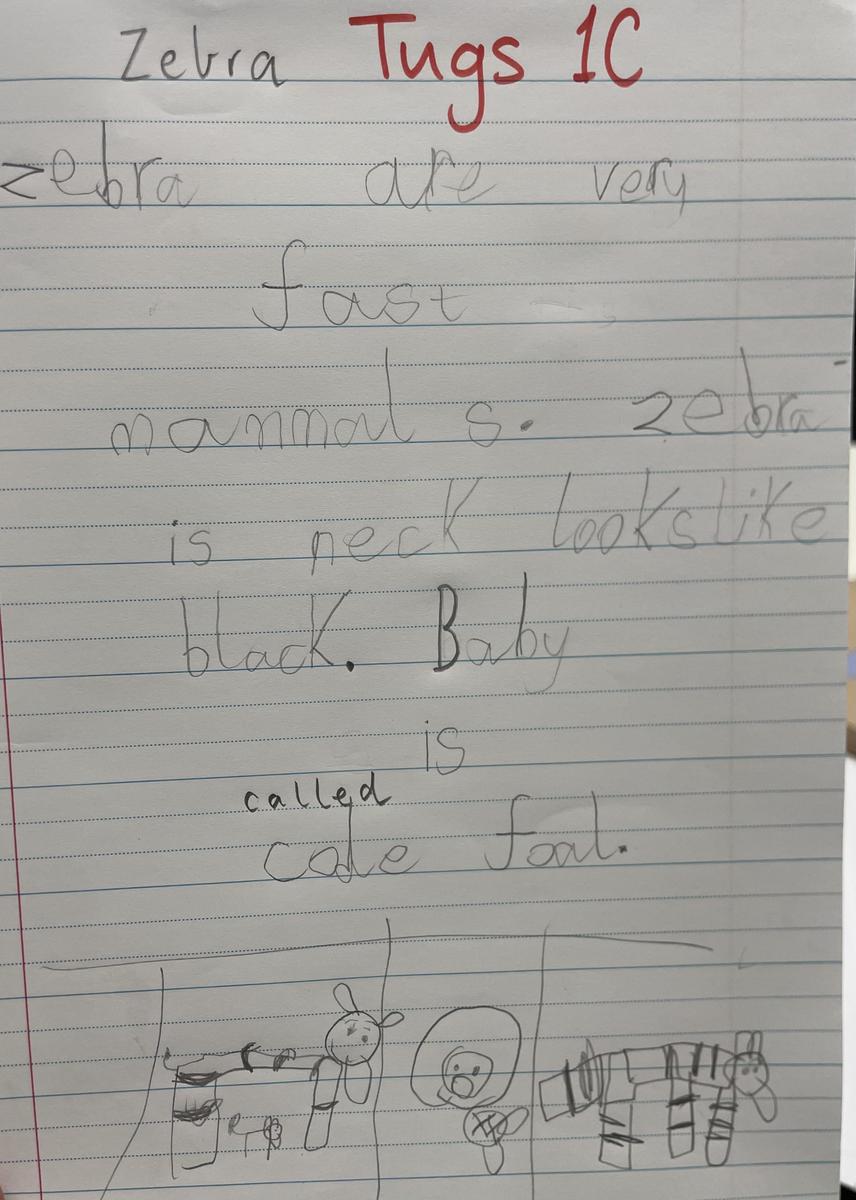 Zebra Tugs 1C
zebra are very
fast
manmal s. zebra
is neck lookslike
black. Baby
is
called
cale foal.